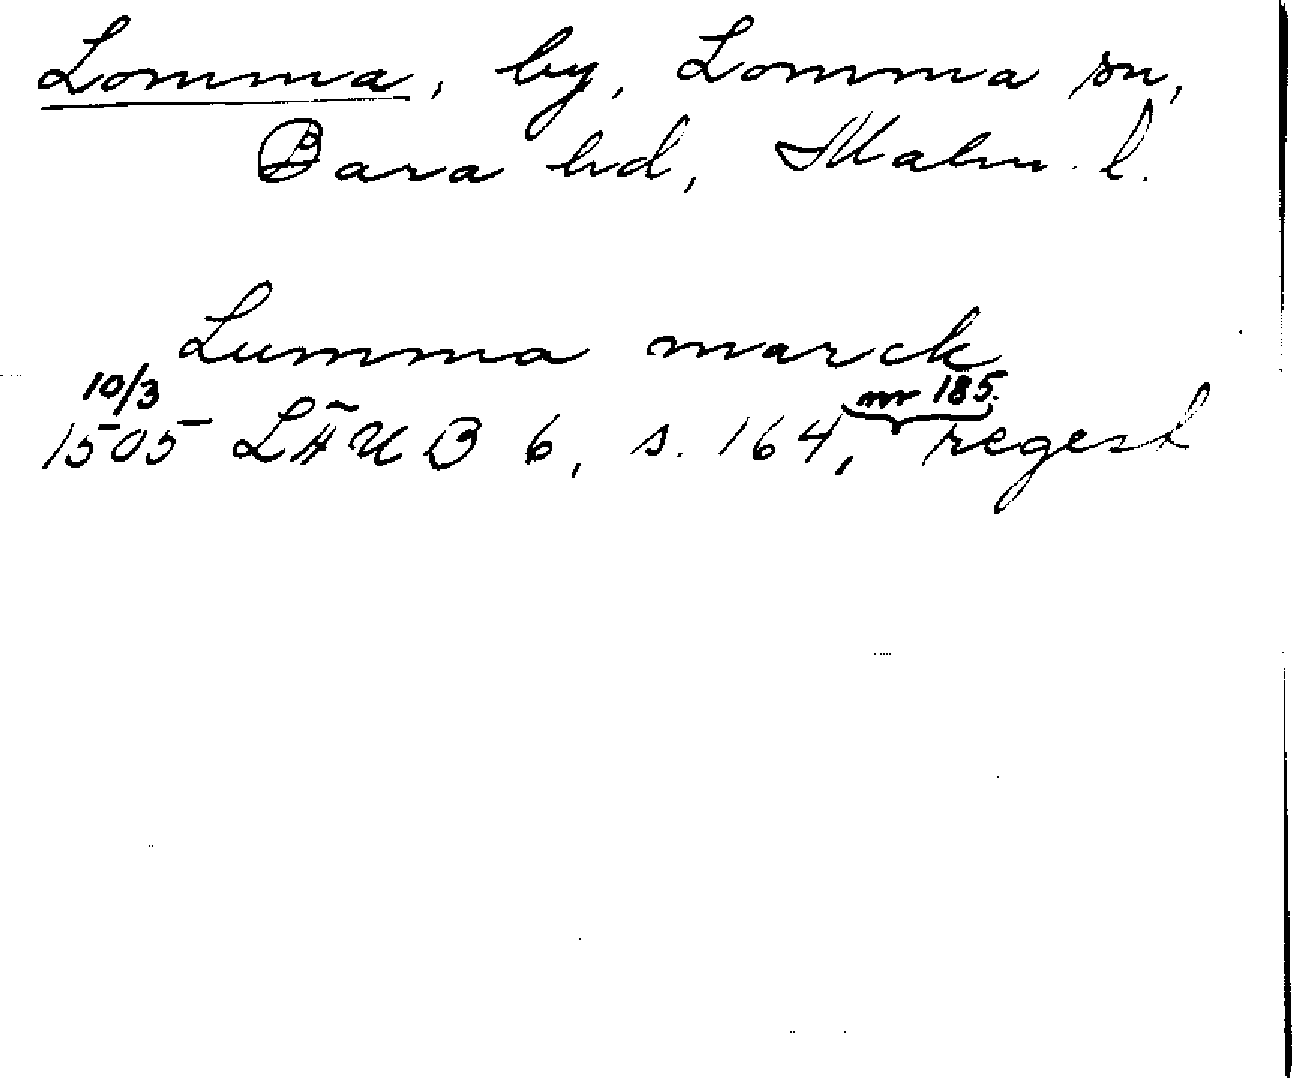 Lomma, by, Lomma sn,
Bara hd, Malm. l.
Lumma marck
10/3 nr 185.
1505 LÄUB 6, s. 164, regest